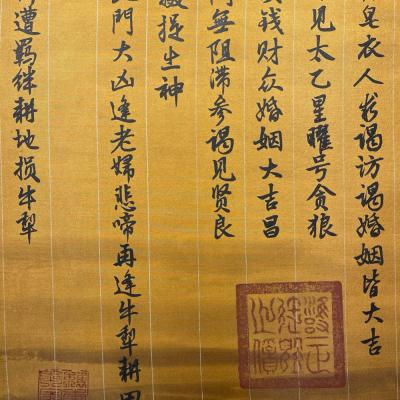 衣人求谒访谒婚姻皆大吉
见太乙星曜号贪狼
钱财众婚姻大吉昌
無阻滞参谒见贤良
提坐神
門大凶逢老婦悲啼再逢牛犁耕田
遭羁绊耕地损牛犁